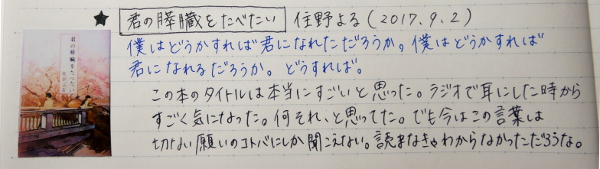 ★ 君の膵臓をたべたい 住野よる(2017.9.2)
僕はどうかすれば君になれただろうか。僕はどうかすれば
君になれるだろうか。どうすれば。
この本のタイトルは本当にすごいと思った。ラジオで耳にした時から
すごく気になった。何それ、と思ってた。でも今はこの言葉は
切ない願いのコトバにしか聞こえない。読まなきゃわからなかっただろうな。
君の膵臓をたべたい
住野よる